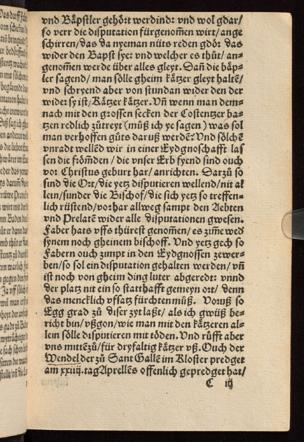 vnd Bäpstler gehört werdind: vnd wol gdar/
so verr die disputation fürgenom̃en wirt/ ange
schirren/ das da nyeman nüts reden gdöꝛ das
wider den Bapst sye: vnd welcher es thüt/ an-
genom̃en werde über alles gleyt. Sañ die bäp-
ler sagend/ man sölle gheim kätzer gleyt haltē/
vnd schryend aber von stundan wider den der
wider sy ist/ Kätzer kätzer. Vñ wenn man dem-
nach mit den grossen secken der Costentzer ba-
tzen redlich zütreyt (müß ich ye sagen) was sol
man verhoffen güts darufß werdē? Vnd sölchē
vnradt wellēd wir in einer Eydgnoschafft las
sen die frömden/ die vnser Erb fyend sind ouch
vor Christus geburt har/ anrichten. Darzü so
sind die Ort/ die yetz disputieren wellend/ nit al
lein/ sunder die Bischof/ die sich yetz so treffen-
lich rüstend/ vorhar allweg sampt den Aebten
vnd Prelatē wider alle disputationen gwesen.
Faber hats vffs thürest genom̃en/ es zim̃e wed
synem noch gheinem bischoff. Vnd yetz gech so
Fabern ouch zimpt in den Eydgnossen zewer-
ben/ so sol ein disputation gehalten werden/ vñ
ist noch von gheim ding luter abgeredt: vnnd
der platz nit ein so statthafft gemeyn ort/ denn
das mencklich vfsatz fürchten müß. Voruß so
Egg grad zü diser zyt laßt/ als ich gwüß be-
richt bin/ vßgon/ wie man mit den kätzeren al-
lein sölle disputieren mit tōden. Vnd rüfft aber
vns mittēzü/ für dryfaltig kätzer vß. Ouch der
Wendel der zü Sant Gallē im Kloster predget
am xxiiij. tag Aprellēs offenlich gepredget hat/
C iij